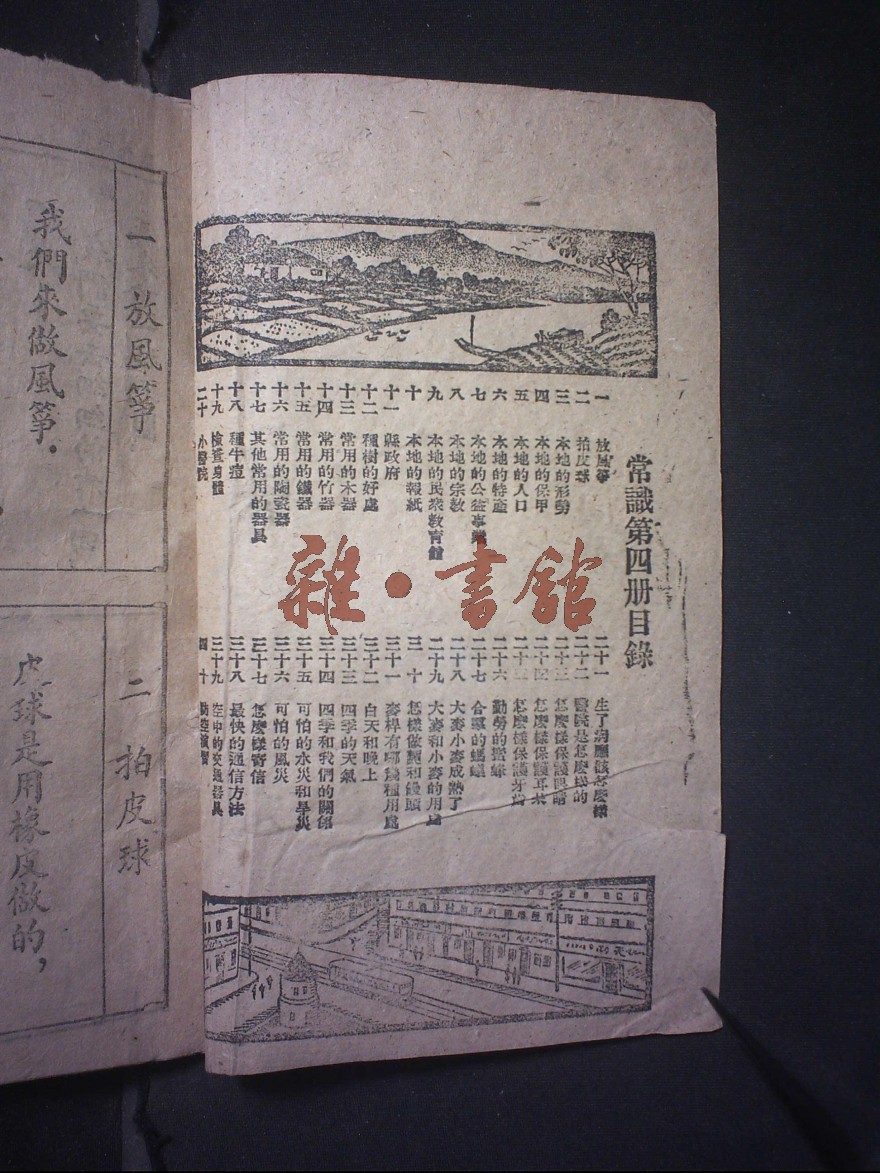 常識第四册目錄
一 放風箏
二 拍皮球
三 本地的形勢
四 本地的保甲
五 本地的人口
六 本地的特產
七 本地的公益事業
八 本地的宗教
九 本地的民衆教育館
十 本地的報紙
十一 縣政府
十二 種樹的好處
十三 常用的木器
十四 常用的竹器
十五 常用的鐵器
十六 常用的陶瓷器
十七 其他常用的器具
十八 種牛痘
十九 檢查身體
二十 小醫院
二十一 生了病應該怎麼樣
二十二 醫院是怎麼樣的
二十三 怎麼樣保護眼睛
二十四 怎麼樣保護耳朵
二十五 怎麼樣保護牙齒
二十六 勤勞的蜜蜂
二十七 合羣的螞蟻
二十八 大麥小麥成熟了
二十九 大麥和小麥的用處
三十 怎樣做麵和饅頭
三十一 麥桿有哪幾種用處
三十二 白天和晚上
三十三 四季的天氣
三十四 四季和我們的關係
三十五 可怕的水災和旱災
三十六 可怕的風災
三十七 怎麼樣寄信
三十八 最快的通信方法
三十九 空中的交通器具
四十 防空演習
雜·書館
一 放風箏
我們來做風箏.
二 拍皮球
皮球是用橡皮做的,